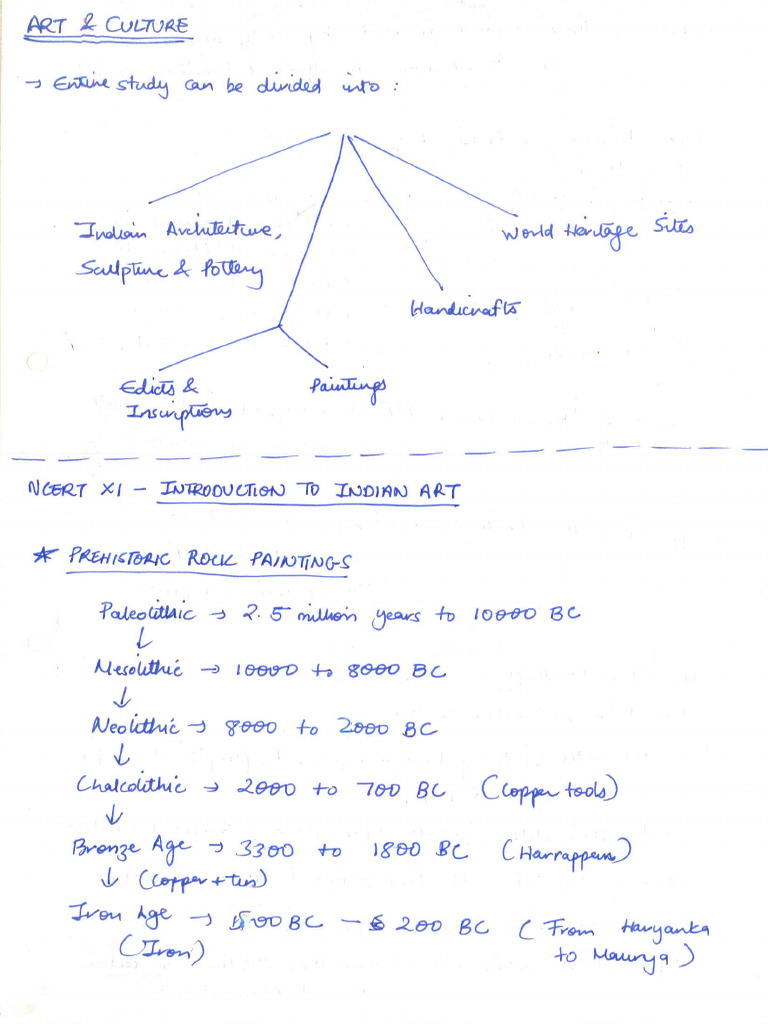 ART & CULTURE
→ Entire study can be divided into :
Indian Architecture,
Sculpture & Pottery
World Heritage Sites
Handicrafts
Edicts &
Inscriptions
Paintings
NCERT XI – INTRODUCTION TO INDIAN ART
* PREHISTORIC ROCK PAINTINGS
Paleolithic → 2.5 million years to 10000 BC
↓
Mesolithic → 10000 to 8000 BC
↓
Neolithic → 8000 to 2000 BC
↓
Chalcolithic → 2000 to 700 BC (Copper tools)
↓
Bronze Age → 3300 to 1800 BC (Harrappean)
↓ (Copper + tin)
Iron Age → 500 BC – 200 BC (From Haryanka
(Iron) to Maurya)